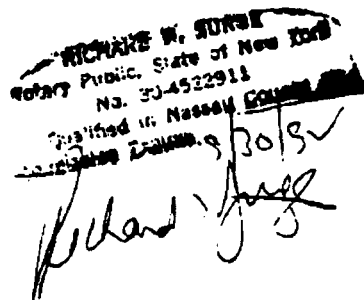 RICHARD W.
Notary Public, State of New York
No. 30-4522911
Qualified in Nassau County
Commission Expires 9/30/9
Richard